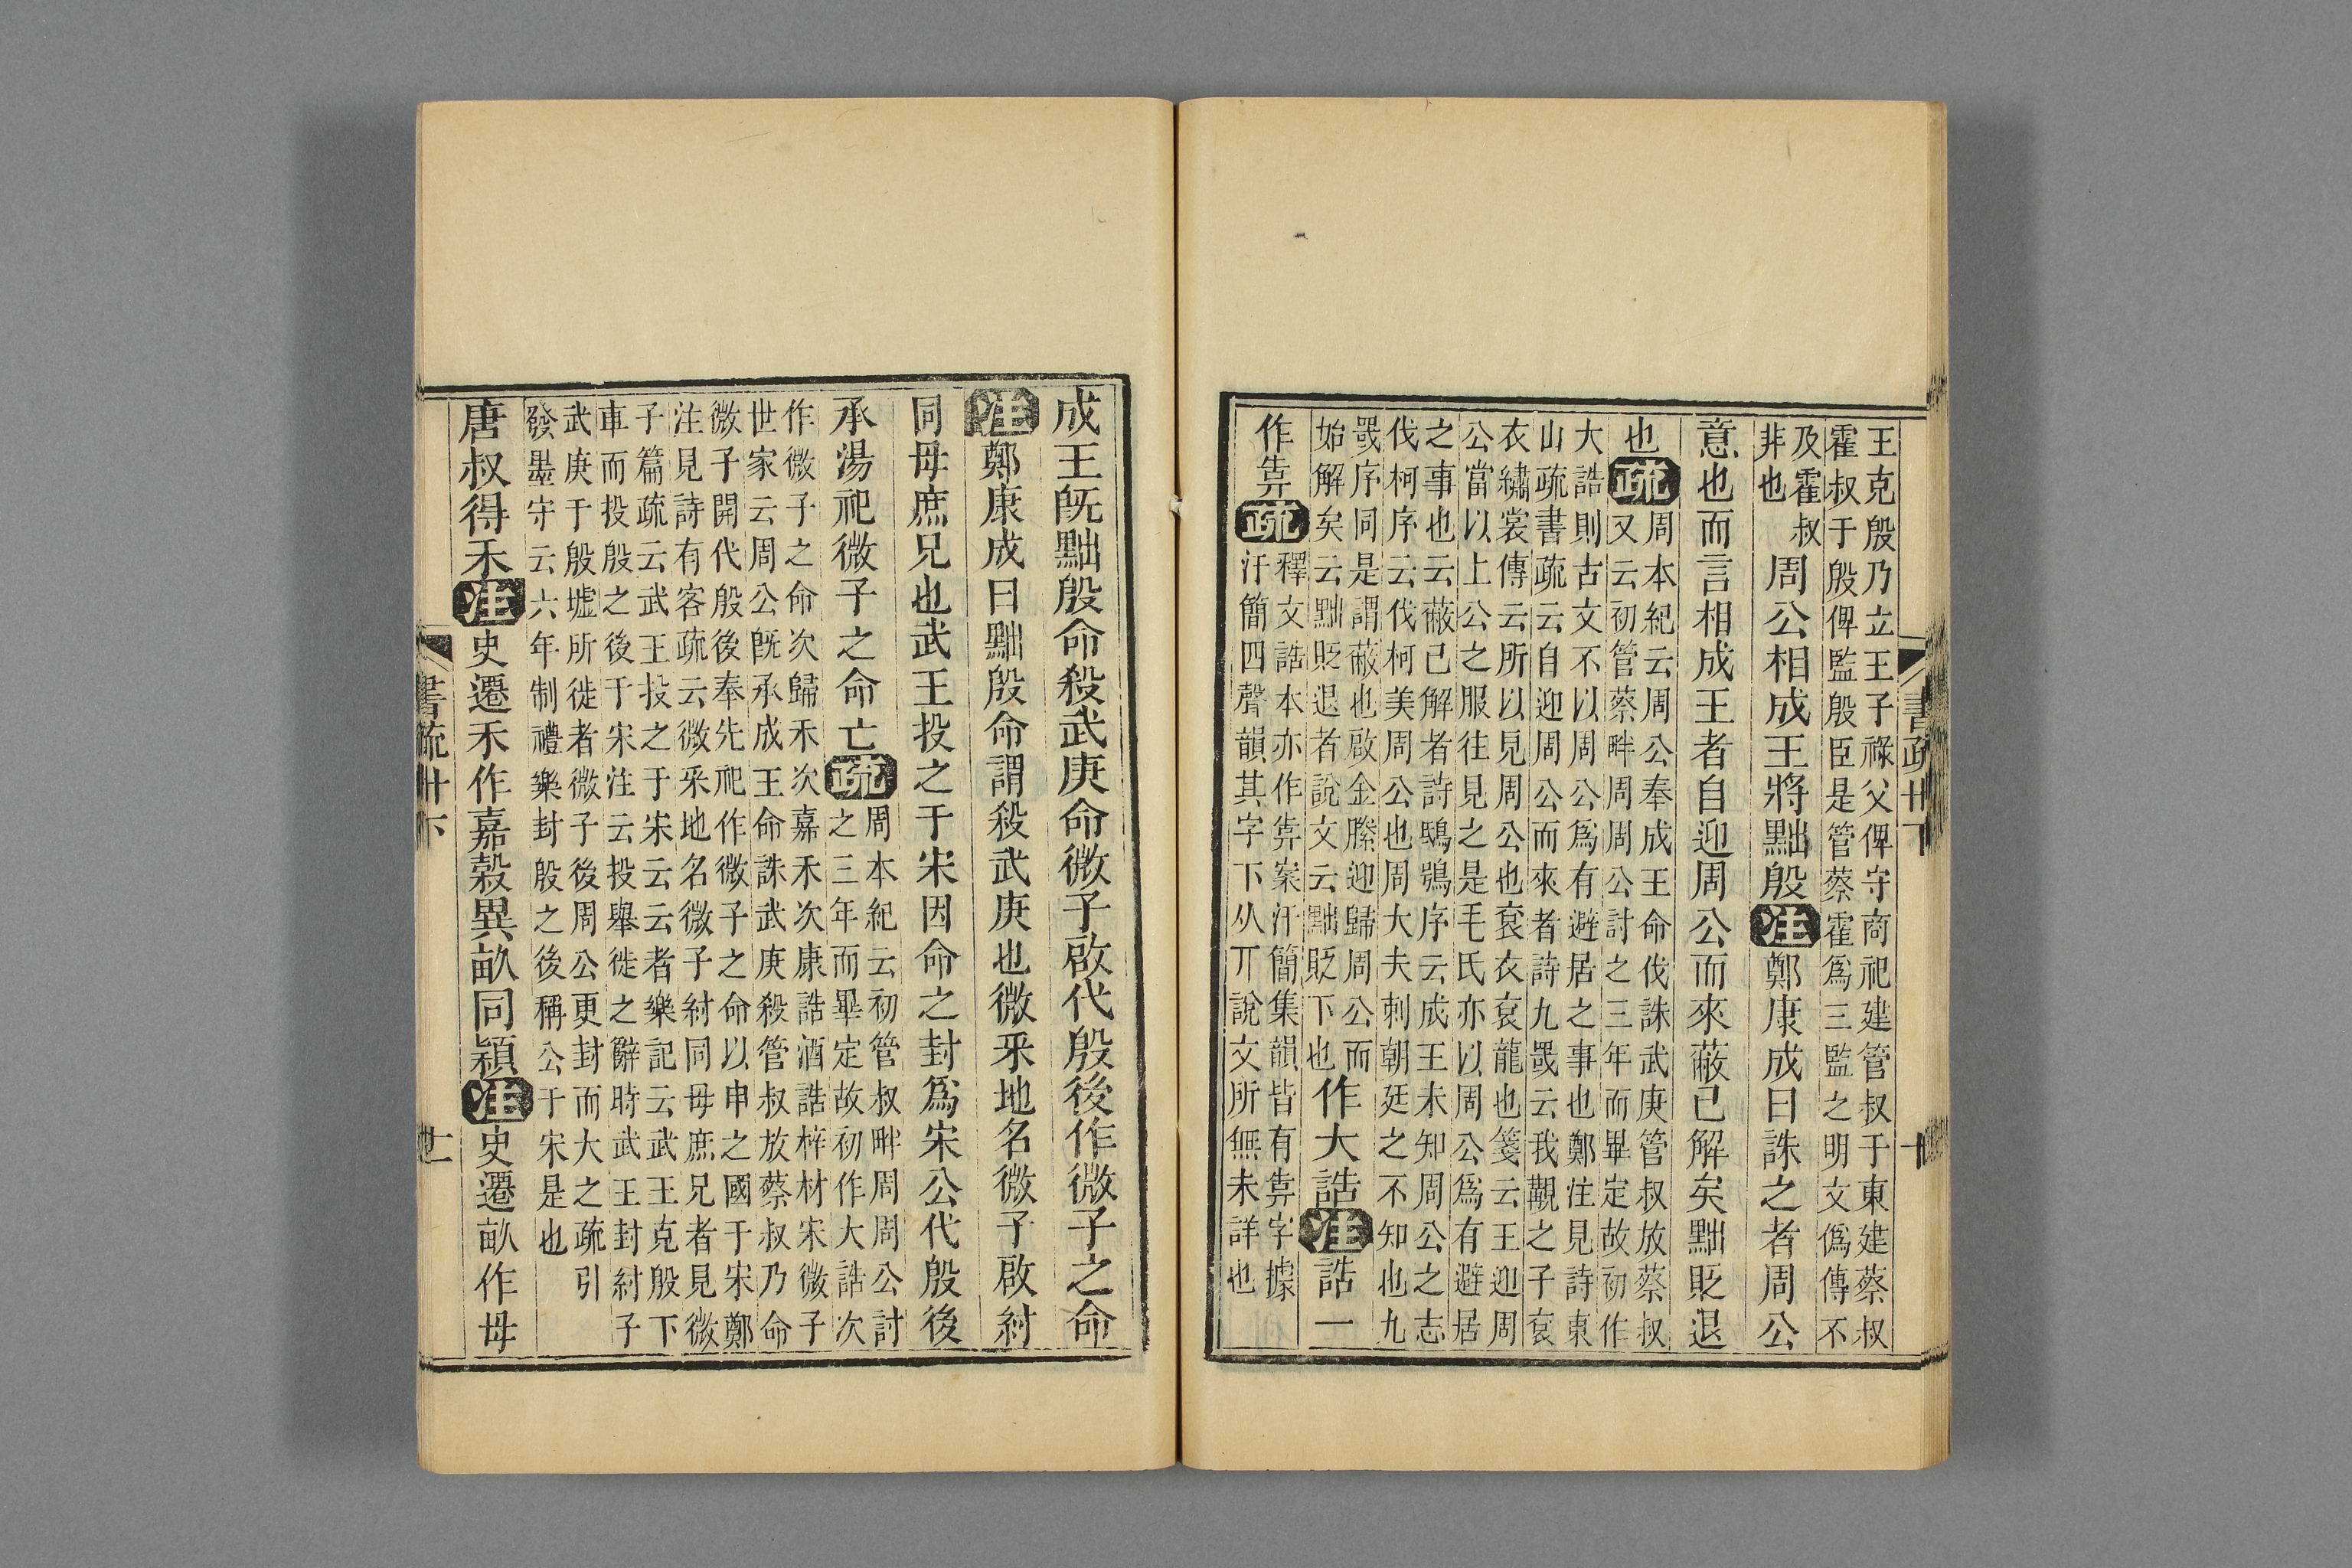 王克殷乃立王子祿父俾守商祀建管叔于東建蔡叔
霍叔于殷俾監殷臣是管蔡霍爲三監之明文僞傳不
及霍叔
非也
周公相成王將黜殷注鄭康成曰誅之者周公
意也而言相成王者自迎周公而來蔽已解矣黜貶退
也疏
周本紀云周公奉成王命伐誅武庚管叔放蔡叔
又云初管蔡畔周周公討之三年而畢定故初作
大誥則古文不以周公爲有避居之事也鄭注見詩東
山疏書疏云自迎周公而來者詩九罭云我覯之子袞
衣繡裳傳云所以見周公也袞衣袞龍也箋云王迎周
公當以上公之服往見之是毛氏亦以周公爲有避居
之事也云蔽已解者詩鴟鴞序云成王未知周公之志
伐柯序云伐柯美周公也周大夫刺朝廷之不知也九
罭序同是謂蔽也啟金縢迎歸周公而
始解矣云黜貶退者說文云黜貶下也
作大誥注誥一
作𢍎疏
釋文誥本亦作𢍎案汗簡集韻皆有𢍎字據
汗簡四聲韻其字下从丌說文所無未詳也
書疏卅下 十
成王旣黜殷命殺武庚命微子啟代殷後作微子之命
注鄭康成曰黜殷命謂殺武庚也微采地名微子啟紂
同母庶兄也武王投之于宋因命之封爲宋公代殷後
承湯祀微子之命亡疏
周本紀云初管叔畔周周公討
之三年而畢定故初作大誥次
作微子之命次歸禾次嘉禾次康誥酒誥梓材宋微子
世家云周公旣承成王命誅武庚殺管叔放蔡叔乃命
微子開代殷後奉先祀作微子之命以申之國于宋鄭
注見詩有客疏云微采地名微子紂同母庶兄者見微
子篇疏云武王投之于宋云云者樂記云武王克殷下
車而投殷之後于宋注云投舉徙之辭時武王封紂子
武庚于殷墟所徙者微子後周公更封而大之疏引
發墨守云六年制禮樂封殷之後稱公于宋是也
唐叔得禾注史遷禾作嘉穀異畝同穎注史遷畝作母
書疏卅下 十一